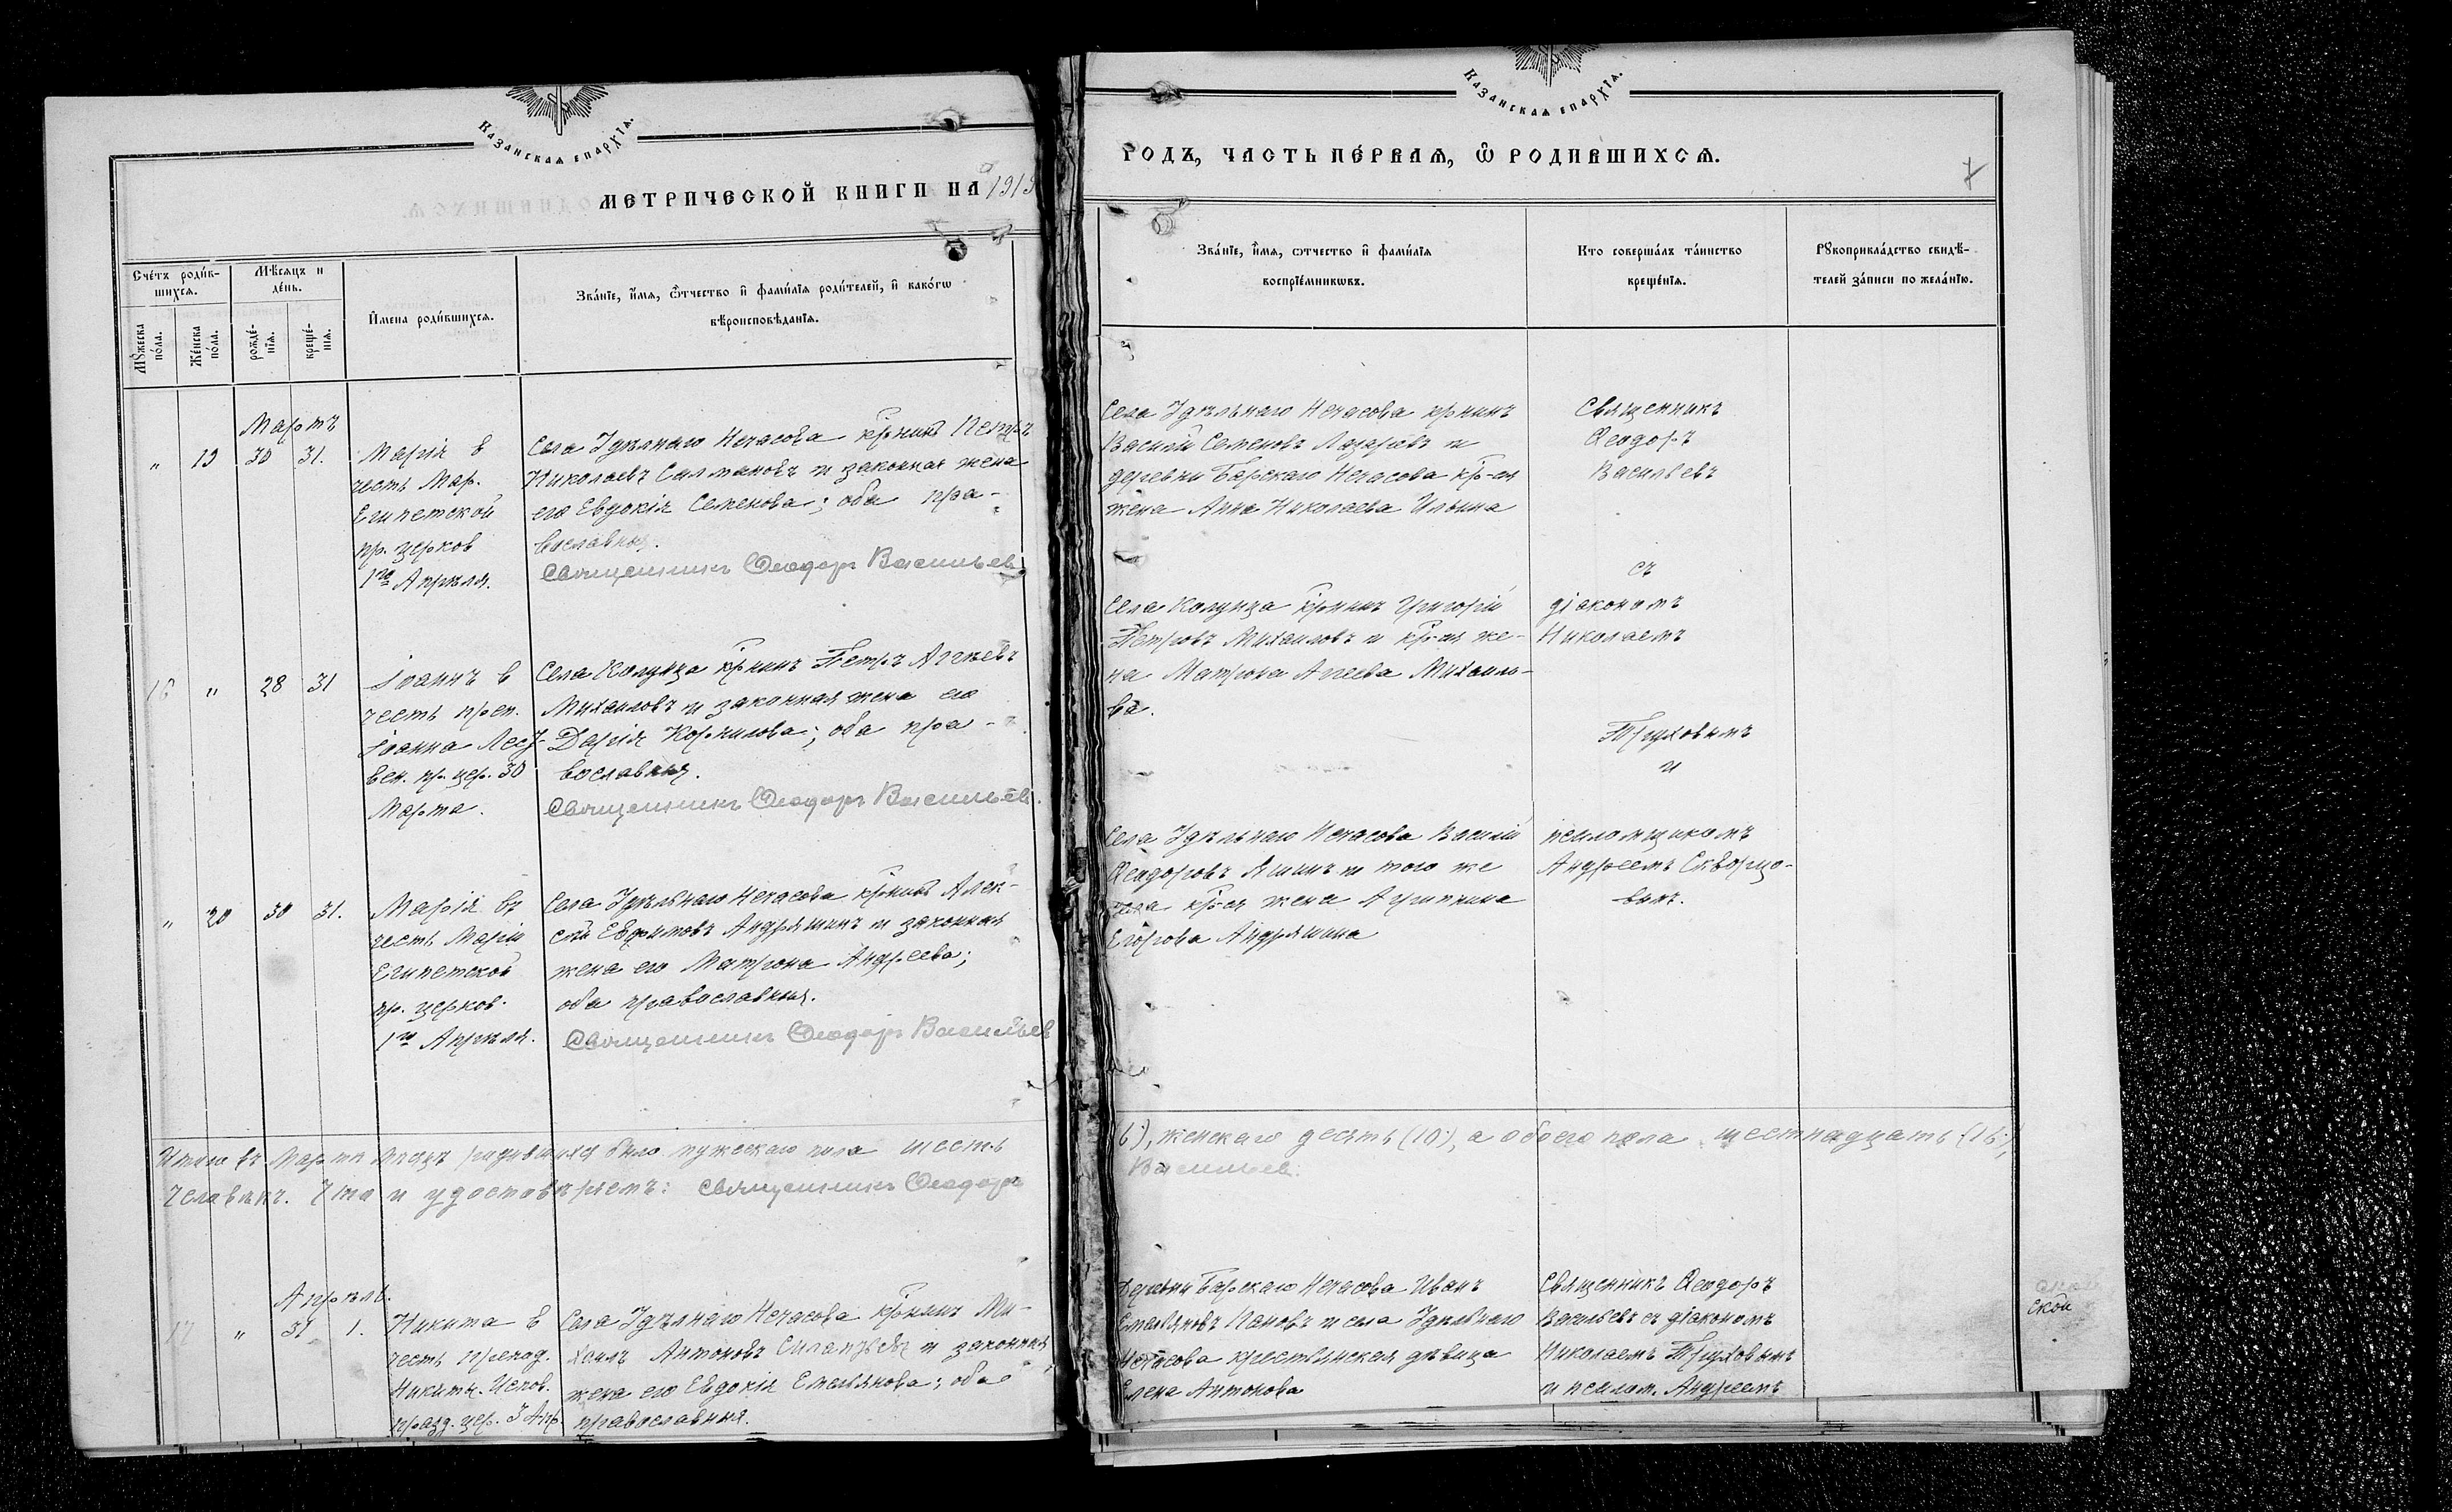 Казанская епархїя.
МЕТРИЧЕСКОЙ КНИГИ НА 1919
Сче́тъ роди́в-
шихся.
Мѣ́сяцъ и
де́нь.
Мꙋ́жеска
по́ла.
Же́нска
по́ла.
рожде́-
нїя.
креще́-
нїя.
И҆мена роди́вшихся.
Зва́нїе, и҆́мя, ѻ҆́тчество и҆ фами́лїя роди́телей, и҆ како́гѡ
вѣроисповѣ́данїя.
Мартъ
„ 19 30 31.
Марія в
честь Мар.
Египетской
пр. церков
1го Апрѣля.
Села Удѣльнаго Нечасова кр-нинъ Петръ
Николаевъ Салмановъ и законная жена
его Евдокія Семенова; оба пра-
вославные.
Священникъ Ѳеодоръ Васильевъ
16 „ 28 31
Іоаннъ в
честь преп.
Іоанна Лест-
вен. пр. цер. 30
Марта.
Села Колунца кр-нинъ Петръ Аггѣевъ
Михаиловъ и законная жена его
Дарія Корнилова; оба пра-
вославныя.
Священникъ Ѳеодоръ Васильевъ.
„ 20 30 31.
Марія въ
честь Маріи
Египетской
пр. церков.
1го Апрѣля.
Села Удѣльнаго Нечасова кр-нинъ Алек-
сѣй Евфимовъ Андряшинъ и законная
жена его Матрона Андреева;
оба православныя.
Священникъ Ѳеодоръ Васильевъ
Итого въ Мартѣ мѣсяцѣ родившихся было мужескаго пола шесть
человѣкъ. Что и удостовѣряемъ: Священникъ Ѳеодоръ
Апрѣль.
17 „ 31 1.
Никита в
честь препод.
Никиты Испов.
празд. цер. 3 Апр.
Села Удѣльнаго Нечасова кр-нинъ Ми-
хаилъ Антоновъ и законная
жена его Евдокія Емельянова; оба
православныя.
Казанская епархїя.
ГОДЪ, ЧАСТЬ ПЕ́РВАЯ, Ѽ РОДИВШИХСЯ.
7
Зва́нїе, и҆́мя, ѻтчество и҆ фами́лїя
воспрїе́мникѡвъ.
Кто соверша́лъ та́инство
креще́нїя.
Рꙋкоприкла́дство свидѣ́-
телей за́писи по жела́нїю.
Села Удѣльнаго Нечасова крнинъ
Василій Семеновъ Лазаревъ и
деревни Барскаго Нечасова кр-ая
жена Анна Николаева Ильина
Священникъ
Ѳеодоръ
Васильевъ
Села Колунца кр-нинъ Григорій
Петровъ Михаиловъ и кр-ая же-
на Матрона Агеева Михаило-
ва.
съ
діакономъ
Николаемъ
Труховымъ
и
Села Удѣльнаго Нечасова Василій
Ѳеодоровъ Яшинъ и того же
села кр-ая жена Агрипина
Егорова Андряшина
псаломщикомъ
Андреемъ Скворцо-
вымъ.
6), женскаго десять (10), а обоего пола шестнадцать (16),
Васильевъ.
Деревни Барскаго Нечасова Иванъ
Емельяновъ Пановъ и села Удѣльнаго
Нечасова крестьянская дѣвица
Елена Антонова
Священникъ Ѳеодоръ
Васильевъ съ діакономъ
Николаемъ Труховымъ
и псалом. Андреемъ
ской